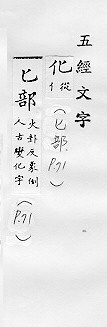 五經文字
化 從亻 (匕部 P.71)
匕部 火卦反象倒
人古變化字 (P.71)